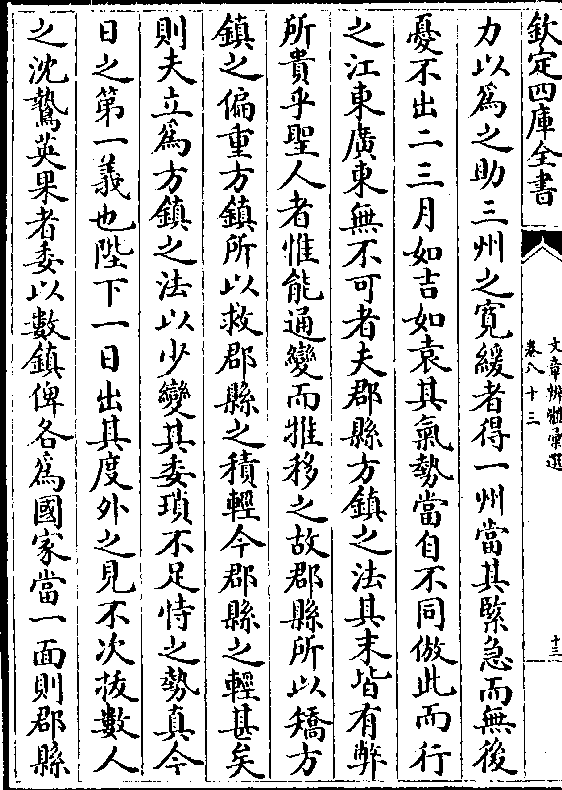 欽定四庫全書
文章辨體彙選
卷八十三
十三
力以爲之助三州之寛緩者得一州當其緊急而無後
憂不出二三月如吉如袁其氣勢當自不同倣此而行
之江東廣東無不可者夫郡縣方鎮之法其末皆有弊
所貴乎聖人者惟能通變而推移之故郡縣所以矯方
鎮之偏重方鎮所以救郡縣之積輕今郡縣之輕甚矣
則夫立爲方鎮之法以少變其委瑣不足恃之勢真今
日之第一義也陛下一日出其度外之見不次㧞數人
之沈鷙英果者委以數鎮俾各爲國家當一面則郡縣